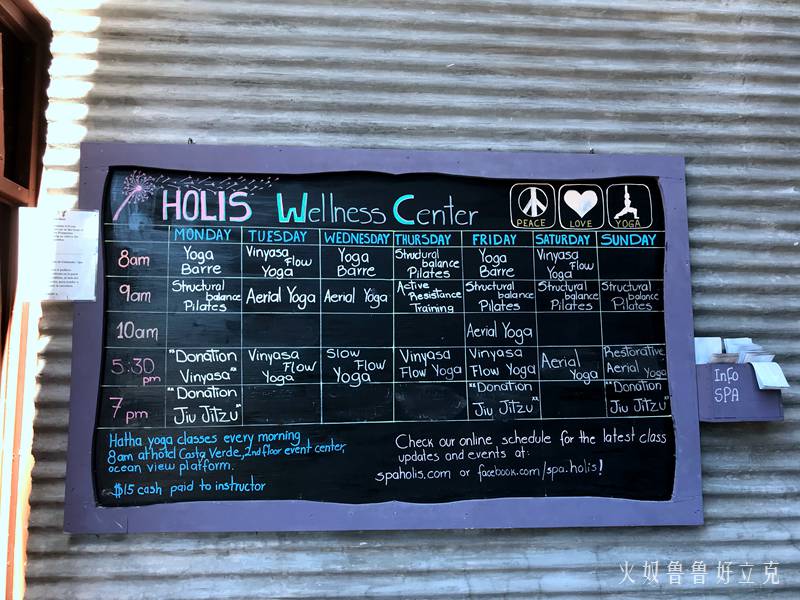 HOLIS Wellness Center
PEACE LOVE YOGA
MONDAY TUESDAY WEDNESDAY THURSDAY FRIDAY SATURDAY SUNDAY
8am
Yoga Barre
Vinyasa Flow Yoga
Yoga Barre
Structural balance Pilates
Yoga Barre
Vinyasa Flow Yoga
9am
Structural balance Pilates
Aerial Yoga
Aerial Yoga
Active Resistance Training
Structural balance Pilates
Structural balance Pilates
Structural balance Pilates
10am
Aerial Yoga
5:30 pm
"Donation Vinyasa"
Vinyasa Flow Yoga
Slow Flow Yoga
Vinyasa Flow Yoga
Vinyasa Flow Yoga
Aerial Yoga
Restorative Aerial Yoga
7 pm
"Donation Jiu Jitzu"
"Donation Jiu Jitzu"
"Donation Jiu Jitzu"
Hatha yoga classes every morning
8am at hotel Costa Verde, 2nd floor event center,
ocean view platform.
$15 cash paid to instructor
Check our online schedule for the latest class
updates and events at:
spaholis.com or facebook.com/spa.holis!
Info
SPA
火奴魯魯好立克